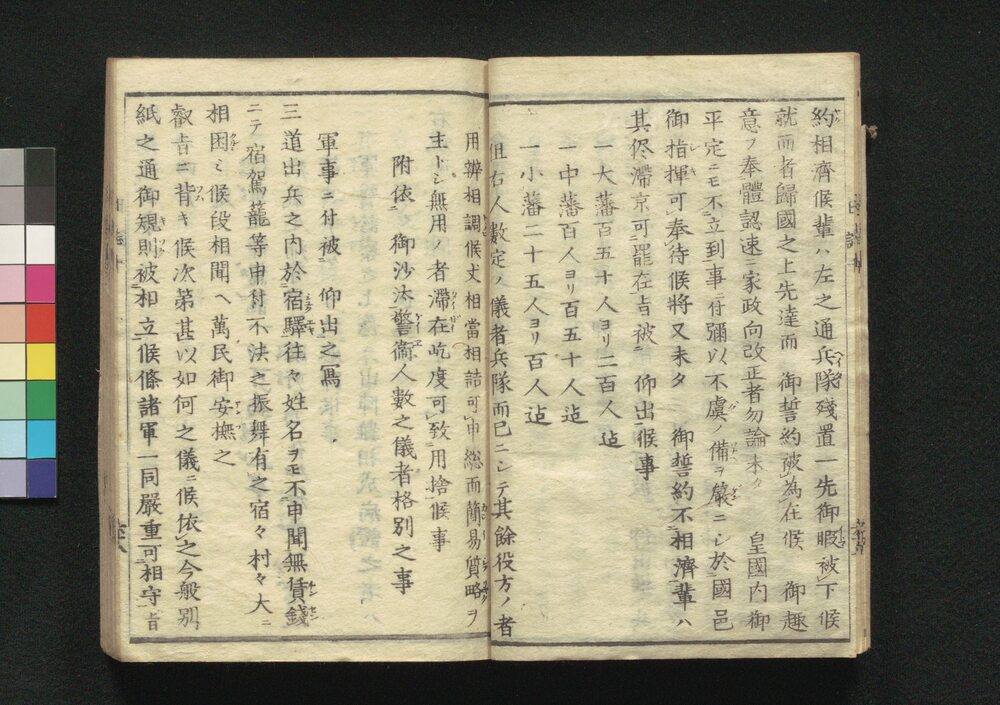 約相濟候輩ハ左之通兵隊殘置一先御暇被下候
就而者歸國之上先達而 御誓約被為在候 御趣
意ノ奉體認速ニ家政向改正者勿論未タ 皇國内御
平定ニモ不立到事ニ付彌以不虞ノ備ヲ嚴ニシ於國邑
御指揮可奉待候將又未タ 御誓約不相濟輩ハ
其侭滯京可罷在旨被 仰出候事
一大藩百五十人ヨリ二百人迠
一中藩百人ヨリ百五十人迠
一小藩二十五人ヨリ百人迠
但右人數定ノ儀者兵隊而已ニシテ其餘役方ノ者
用辨相調候丈相當相詰可申総而簡易質略ヲ
主トシ無用ノ者滯在屹度可致用捨候事
附依 御沙汰警衞人數之儀者格別之事
軍事ニ付被 仰出之寫
三道出兵之内於宿驛往々姓名ヲモ不申聞無賃錢
ニテ宿駕籠等申付不法之振舞有之宿々村々大ニ
相困ミ候段相聞ヘ萬民御安撫之
叡旨ニ背キ候次第甚以如何之儀ニ候依之今般別
紙之通御規則被相立候條諸軍一同嚴重可相守旨